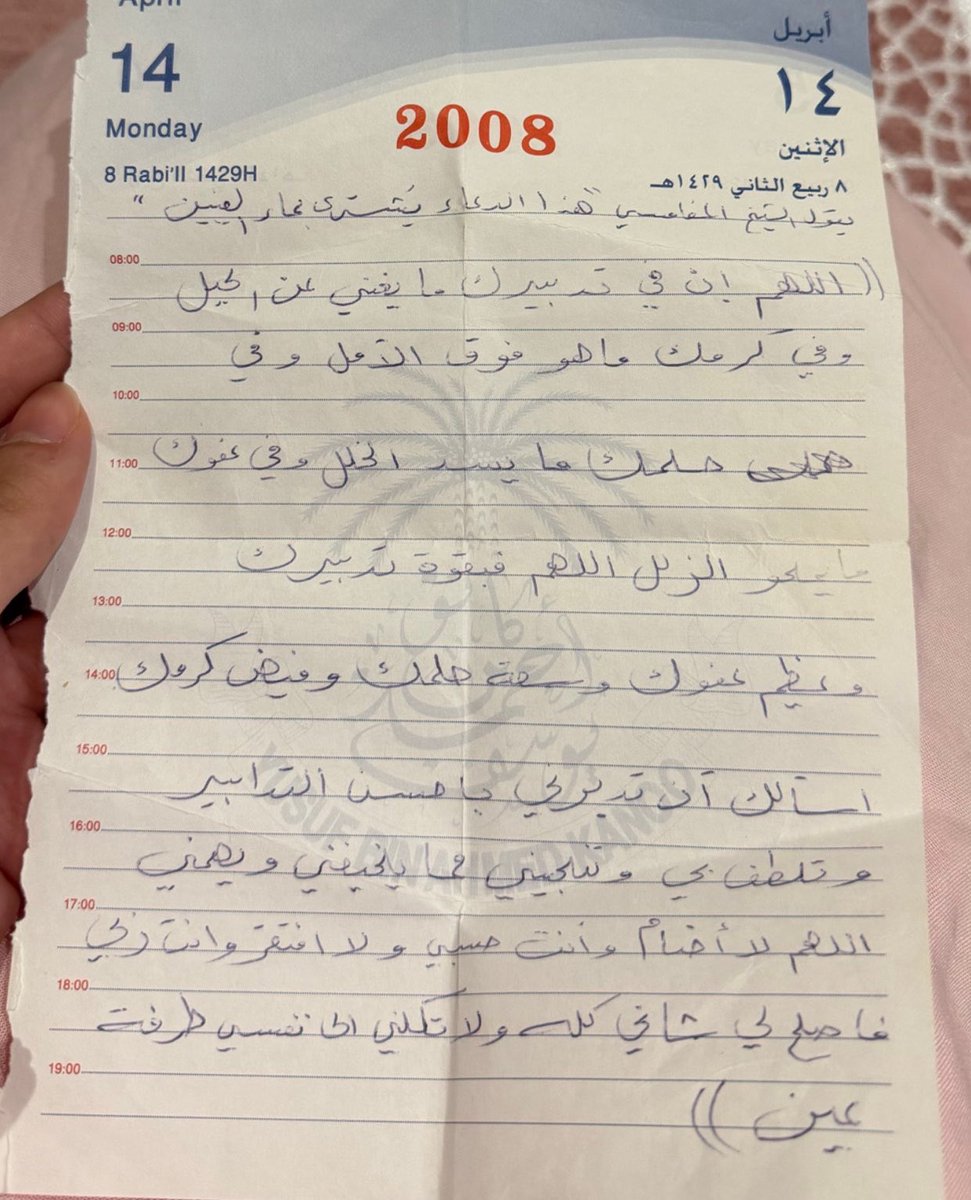 April
أبريل
14
١٤
Monday
2008
الإثنين
8 Rabi'II 1429H
٨ ربيع الثاني ١٤٢٩هـ
يقول الشيخ المغامسي "هذا الدعاء يُشترى بماء العينين"
08:00
((اللهم إن في تدبيرك ما يغني عن الحيل
09:00
وفي كرمك ماهو فوق الآمل وفي
10:00
11:00
حلمك ما يسد الخلل وفي عفوك
12:00
ما يمحو الزلل اللهم فبقوة تدبيرك
13:00
14:00
وعظيم عفوك وسعة حلمك وفيض كرمك
15:00
اسألك أن تدبرني باحسن التدابير
16:00
وتلطف بي وتنجيني مما يخيفني ويهمني
17:00
اللهم لا أضامُ وأنت حسبي ولا افتقر وانت ربي
18:00
فاصلح لي شاني كله ولا تكلني الى نفسي طرفة
19:00
عين))
أحمد كانو
يوسف بن
YUSUF BIN AHMED KANOO